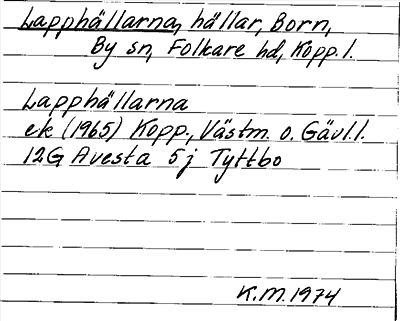 Lapphällarna, hällar, Born,
By sn, Folkare hd, Kopp. l.
Lapphällarna
ek (1965) Kopp., Västm. o. Gävl. l.
12G Avesta 5j Tyttbo
K.M. 1974